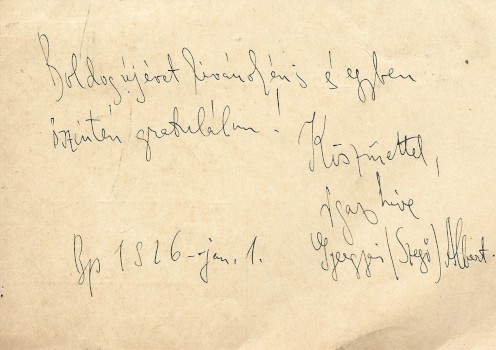 Boldog újévet kívánok én is s egyben
őszintén gratulálom!
Köszönettel,
igaz híve
Bp 1926-ján. 1. (Szegő) Albert.